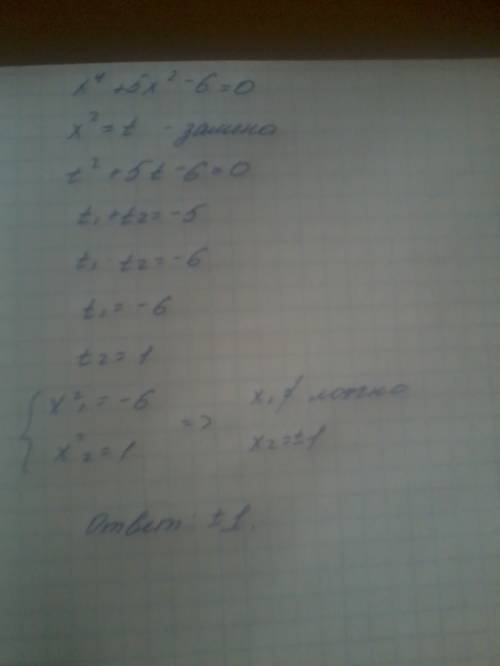 x⁴ + 5x² - 6 = 0
x² = t - замена
t² + 5t - 6 = 0
t₁ + t₂ = -5
t₁ t₂ = -6
t₁ = -6
t₂ = 1
{ x²₁ = -6 => x₁ ложно
x²₂ = 1 x₂ = ±1
Ответ: ±1.